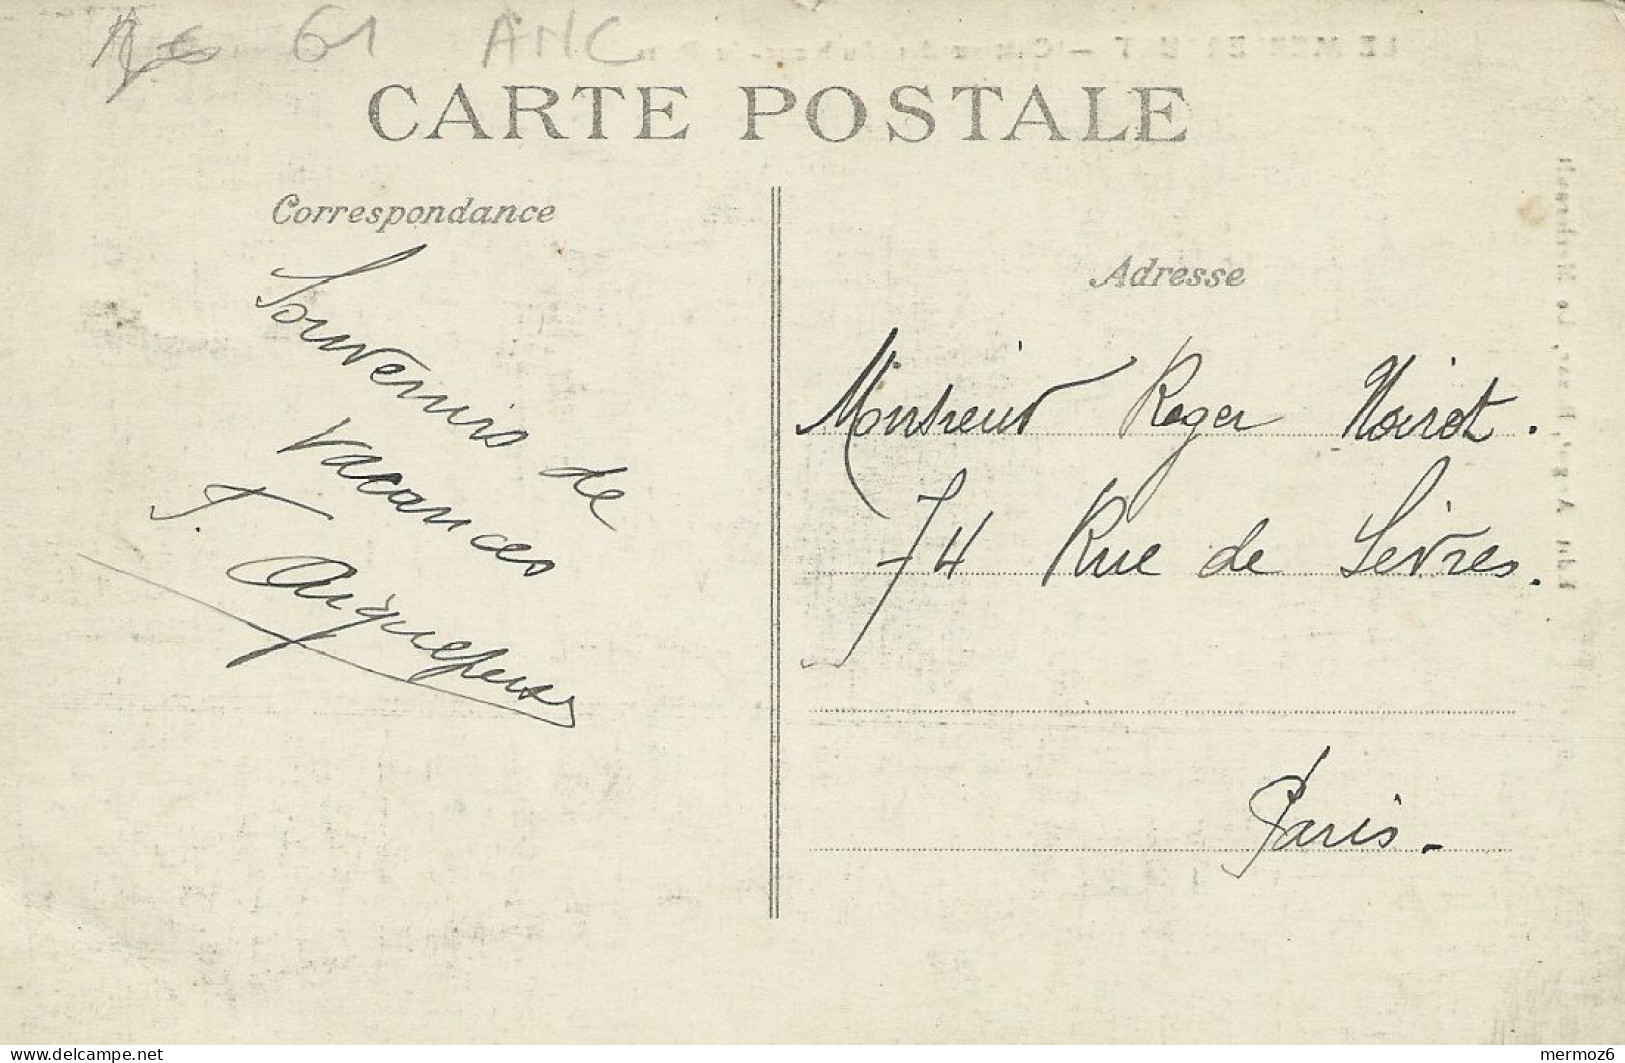 61 ANC
CARTE POSTALE
Correspondance
Souvenirs de
vacances
J. Aigueperse
Adresse
Monsieur Roger Noirot.
74 Rue de Sèvres.
Paris-
www.delcampe.net
mermoz6